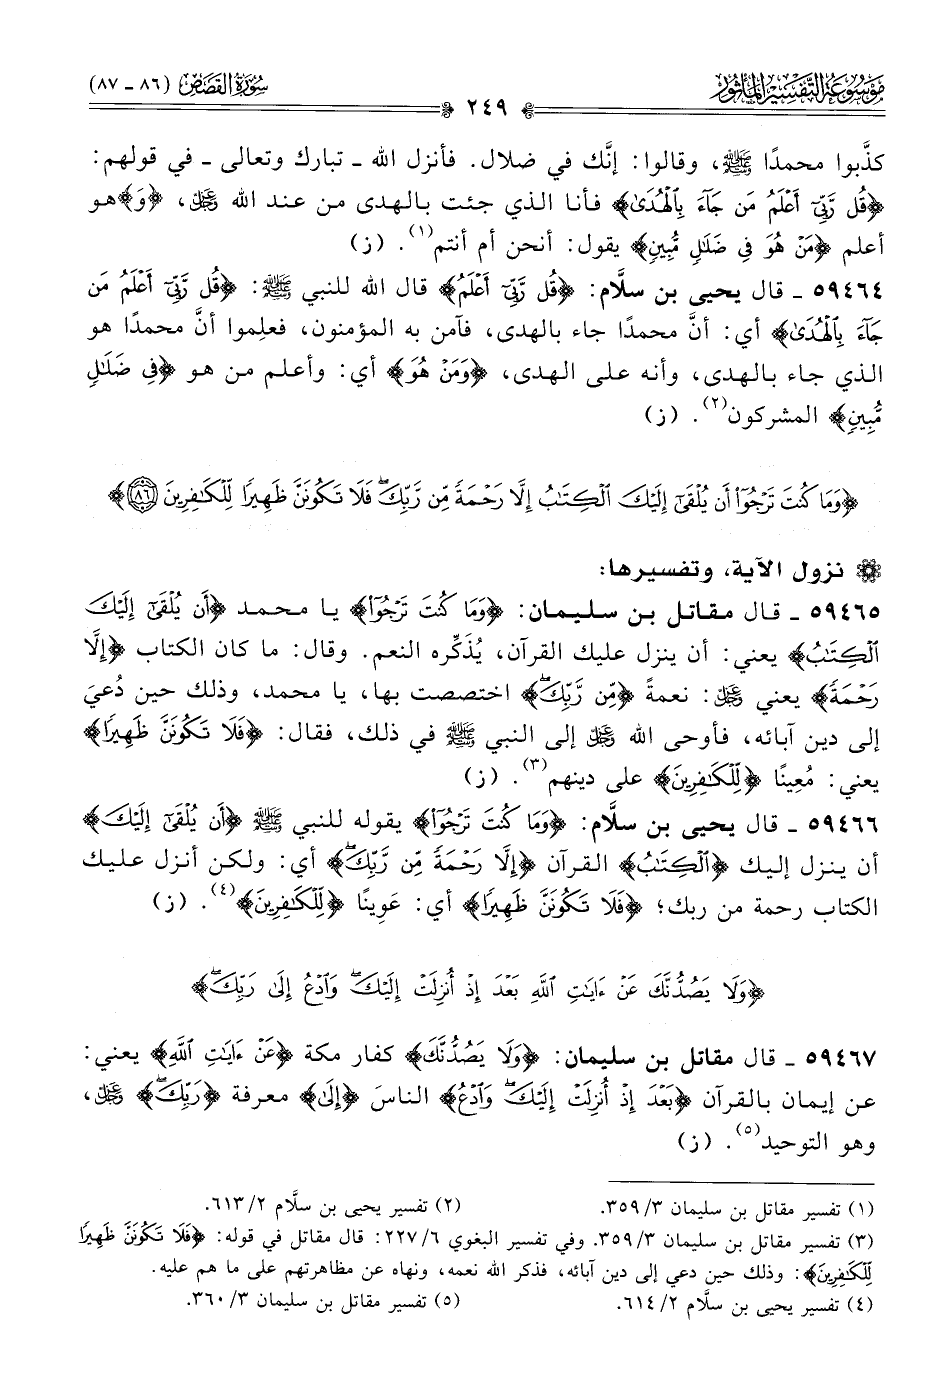 مَوْسُوعَةُ التَّفْسِيرِ المَأْثُور
سُورَةُ القَصَصِ (٨٦ - ٨٧)
٢٤٩
كذَّبوا محمدًا ﷺ، وقالوا: إنَّك في ضلال. فأنزل الله ـ تبارك وتعالى ـ في قولهم:
﴿قُل رَّبِّىٓ أَعْلَمُ مَن جَآءَ بِٱلْهُدَىٰ﴾ فأنا الذي جئت بالهدى من عند الله ﷿، ﴿وَ﴾هو
أعلم ﴿مَنْ هُوَ فِى ضَلَٰلٍ مُّبِينٍ﴾ يقول: أنحن أم أنتم(١). (ز)
٥٩٤٦٤ ـ قال يحيى بن سلَّام: ﴿قُل رَّبِّىٓ أَعْلَمُ﴾ قال الله للنبي ﷺ: ﴿قُل رَّبِّىٓ أَعْلَمُ مَن
جَآءَ بِٱلْهُدَىٰ﴾ أي: أنَّ محمدًا جاء بالهدى، فآمن به المؤمنون، فعلِموا أنَّ محمدًا هو
الذي جاء بالهدى، وأنه على الهدى، ﴿وَمَنْ هُوَ﴾ أي: وأعلم من هو ﴿فِى ضَلَٰلٍ
مُّبِينٍ﴾ المشركون(٢). (ز)
﴿وَمَا كُنتَ تَرْجُوٓا۟ أَن يُلْقَىٰٓ إِلَيْكَ ٱلْكِتَٰبُ إِلَّا رَحْمَةً مِّن رَّبِّكَ ۖ فَلَا تَكُونَنَّ ظَهِيرًا لِّلْكَٰفِرِينَ ٨٦﴾
نزول الآية، وتفسيرها:
٥٩٤٦٥ ـ قال مقاتل بن سليمان: ﴿وَمَا كُنتَ تَرْجُوٓا۟﴾ يا محمد ﴿أَن يُلْقَىٰٓ إِلَيْكَ
ٱلْكِتَٰبُ﴾ يعني: أن ينزل عليك القرآن، يُذَكِّره النعم. وقال: ما كان الكتاب ﴿إِلَّا
رَحْمَةً﴾ يعني ﷿: نعمةً ﴿مِّن رَّبِّكَ ۖ﴾ اختصصت بها، يا محمد، وذلك حين دُعيَ
إلى دين آبائه، فأوحى الله ﷿ إلى النبي ﷺ في ذلك، فقال: ﴿فَلَا تَكُونَنَّ ظَهِيرًا﴾
يعني: مُعِينًا ﴿لِّلْكَٰفِرِينَ﴾ على دينهم(٣). (ز)
٥٩٤٦٦ ـ قال يحيى بن سلَّام: ﴿وَمَا كُنتَ تَرْجُوٓا۟﴾ يقوله للنبي ﷺ ﴿أَن يُلْقَىٰٓ إِلَيْكَ﴾
أن ينزل إليك ﴿ٱلْكِتَٰبُ﴾ القرآن ﴿إِلَّا رَحْمَةً مِّن رَّبِّكَ ۖ﴾ أي: ولكن أنزل عليك
الكتاب رحمة من ربك؛ ﴿فَلَا تَكُونَنَّ ظَهِيرًا﴾ أي: عَوِينًا ﴿لِّلْكَٰفِرِينَ﴾(٤). (ز)
﴿وَلَا يَصُدُّنَّكَ عَنْ ءَايَٰتِ ٱللَّهِ بَعْدَ إِذْ أُنزِلَتْ إِلَيْكَ ۖ وَٱدْعُ إِلَىٰ رَبِّكَ ۖ﴾
٥٩٤٦٧ ـ قال مقاتل بن سليمان: ﴿وَلَا يَصُدُّنَّكَ﴾ كفار مكة ﴿عَنْ ءَايَٰتِ ٱللَّهِ﴾ يعني:
عن إيمان بالقرآن ﴿بَعْدَ إِذْ أُنزِلَتْ إِلَيْكَ ۖ وَٱدْعُ﴾ الناسَ ﴿إِلَىٰ﴾ معرفة ﴿رَبِّكَ ۖ﴾ ﷿،
وهو التوحيد(٥). (ز)
(١) تفسير مقاتل بن سليمان ٣/ ٣٥٩. (٢) تفسير يحيى بن سلَّام ٢/ ٦١٣.
(٣) تفسير مقاتل بن سليمان ٣/ ٣٥٩. وفي تفسير البغوي ٦/ ٢٢٧: قال مقاتل في قوله: ﴿فَلَا تَكُونَنَّ ظَهِيرًا
لِّلْكَٰفِرِينَ﴾: وذلك حين دعي إلى دين آبائه، فذكر الله نعمه، ونهاه عن مظاهرتهم على ما هم عليه.
(٤) تفسير يحيى بن سلَّام ٢/ ٦١٤. (٥) تفسير مقاتل بن سليمان ٣/ ٣٦٠.